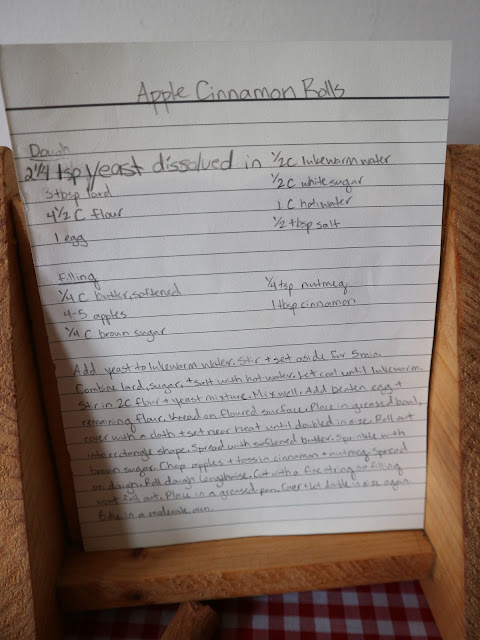 Apple Cinnamon Rolls
Dough
2 1/4 tsp yeast dissolved in 1/2 C lukewarm water
3 tbsp lard 1/2 C white sugar
4 1/2 C flour 1 C hot water
1 egg 1/2 tbsp salt
Filling
1/4 C butter, softened 1/4 tsp nutmeg
4-5 apples 1 tbsp cinnamon
1/4 C brown sugar
Add yeast to lukewarm water. Stir + set aside for 5 min.
Combine lard, sugar, + salt with hot water. Let cool until lukewarm.
Stir in 2C flour + yeast mixture. Mix well. Add beaten egg +
remaining flour. Knead on floured surface. Place in greased bowl,
cover with a cloth + set near heat until doubled in size. Roll out
into rectangle shape. Spread with softened butter. Sprinkle with
brown sugar. Chop apples + toss in cinnamon + nutmeg. Spread
on dough. Roll dough lengthwise. Cut with a fine string so filling
wont fall out. Place in a greased pan. Cover + let double in size again
Bake in a moderate oven.